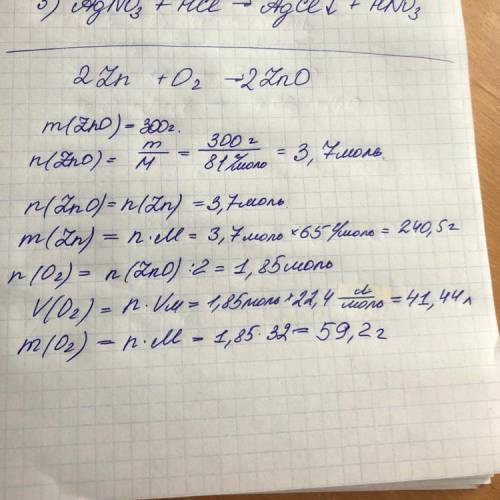 3) AgNO₃ + HCl → AgCl↓ + HNO₃
2Zn + O₂ → 2ZnO
m(ZnO) = 300г.
n(ZnO) = m/M = 300г/81г/моль = 3,7моль.
n(ZnO) = n(Zn) = 3,7моль.
m(Zn) = n·M = 3,7моль × 65г/моль = 240,5г
n(O₂) = n(ZnO) : 2 = 1,85моль
V(O₂) = n·Vм = 1,85моль × 22,4 л/моль = 41,44л
m(O₂) = n·M = 1,85·32 = 59,2г